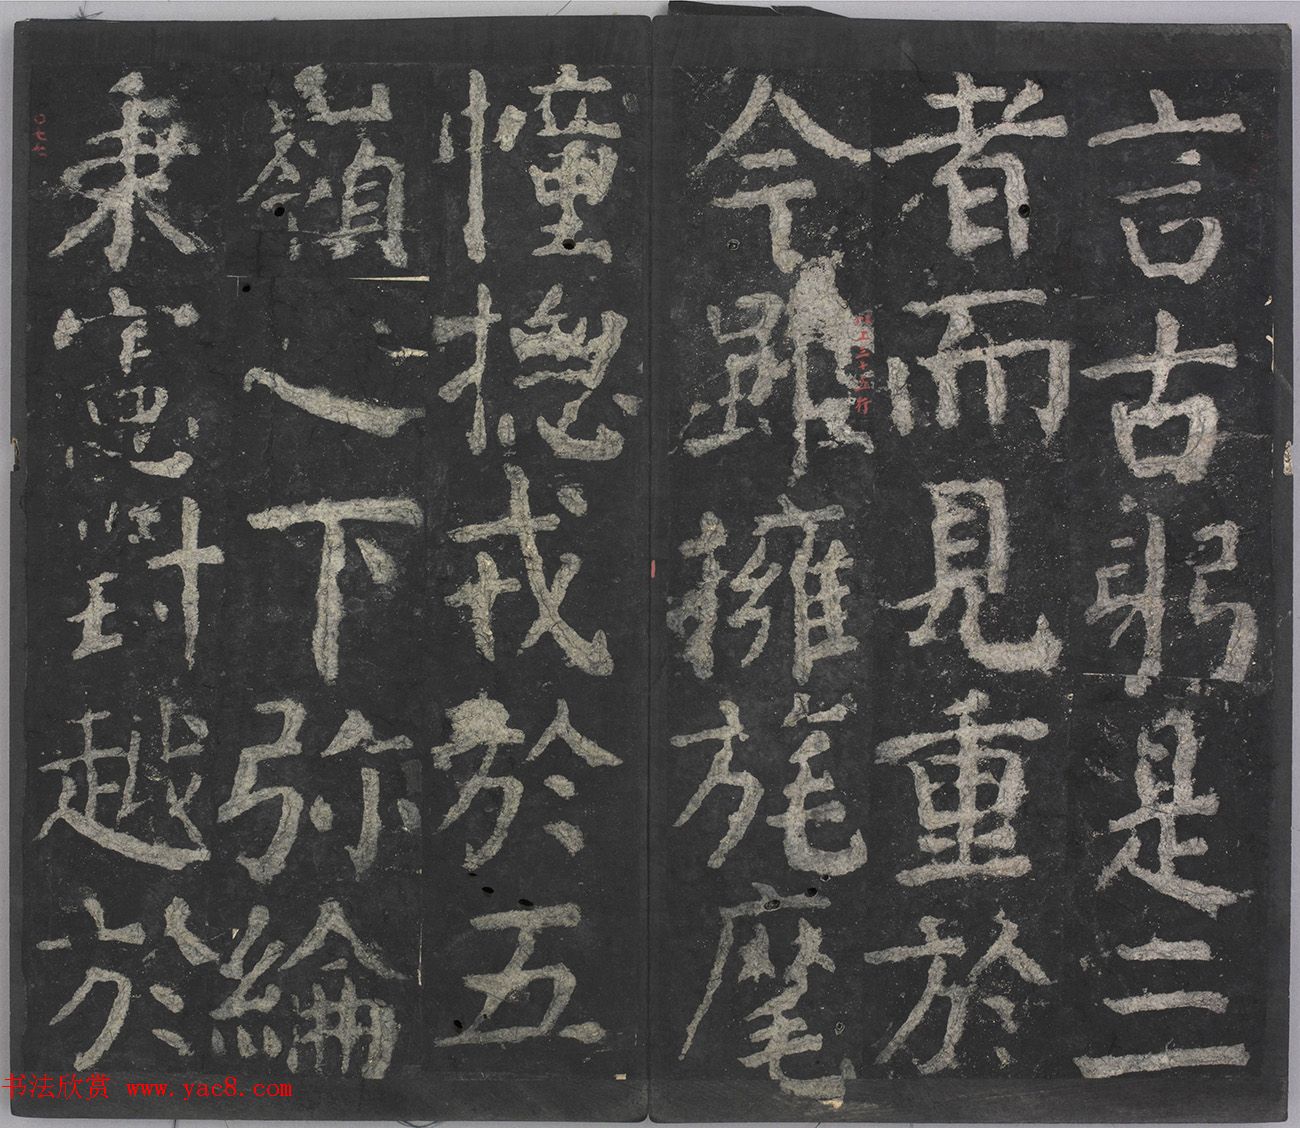 言古躬是三
者而見重於
今雖擁旄麾
憧摠戎於五
嶺之下弥綸
秉憲對越於
书法欣赏 www.yac8.com